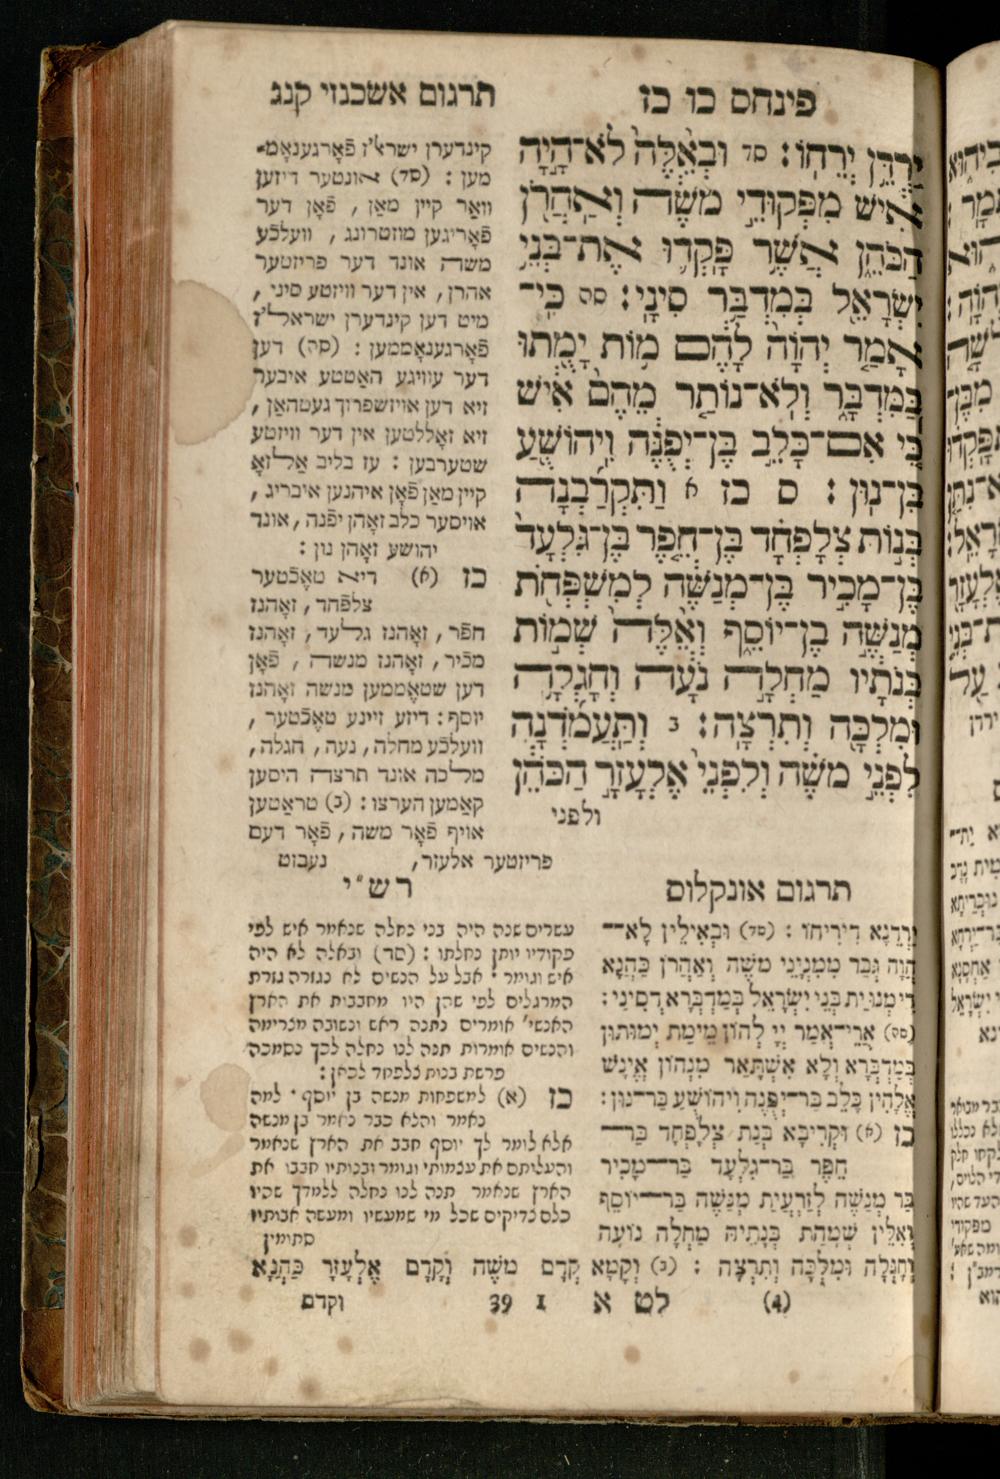 פינחס כו כז
תרגום אשכנזי קנג
יַרְדֵּן יְרֵחֽוֹ׃ סד וּבְאֵ֙לֶּה֙ לֹא־הָ֣יָה
אִ֔ישׁ מִפְּקוּדֵ֣י מֹשֶׁ֔ה וְאַהֲרֹ֖ן
הַכֹּהֵ֑ן אֲשֶׁ֥ר פָּקְד֛וּ אֶת־בְּנֵ֥י
יִשְׂרָאֵ֖ל בְּמִדְבַּ֥ר סִינָֽי׃ סה כִּֽי־
אָמַ֤ר יְהוָה֙ לָהֶ֔ם מ֥וֹת יָמֻ֖תוּ
בַּמִּדְבָּ֑ר וְלֹא־נוֹתַ֤ר מֵהֶם֙ אִ֔ישׁ
כִּ֚י אִם־כָּלֵ֣ב בֶּן־יְפֻנֶּ֔ה וִיהוֹשֻׁ֖עַ
בִּן־נֽוּן׃ ס כז א וַתִּקְרַ֜בְנָה
בְּנ֣וֹת צְלָפְחָ֗ד בֶּן־חֵ֤פֶר בֶּן־גִּלְעָד֙
בֶּן־מָכִ֣יר בֶּן־מְנַשֶּׁ֔ה לְמִשְׁפְּחֹ֖ת
מְנַשֶּׁ֣ה בֶן־יוֹסֵ֑ף וְאֵ֙לֶּה֙ שְׁמ֣וֹת
בְּנֹתָ֔יו מַחְלָ֣ה נֹעָ֔ה וְחָגְלָ֥ה
וּמִלְכָּ֖ה וְתִרְצָֽה׃ ב וַֽתַּעֲמֹ֜דְנָה
לִפְנֵ֣י מֹשֶׁ֗ה וְלִפְנֵי֙ אֶלְעָזָ֣ר הַכֹּהֵ֔ן
ולפני
קינדערן ישרא׳ז פֿאָרגענאָמ־
מען : (סד) אונטער דיזען
וואַר קיין מאַן , פֿאָן דער
פֿאָריגען מוסטרונג , וועלכֿע
משה אונד דער פריזטער
אהרן, אין דער וויזטע סיני ,
מיט דען קינדערן ישראל׳ז
פֿאָרגענאָממען : (סה) דען
דער עוויגע האַטטע איבער
זיא דען אויזשפרוך געטהאַן ,
זיא זאָללטען אין דער וויזטע
שטערבען : עז בליב אַלזאָ
קיין מאַן פֿאָן איהנען איבריג ,
אויסער כלב זאָהן יפֿנה , אונד
יהושע זאָהן נון :
כז (א) דיא טאָכֿטער
צלפֿחד, זאָהנז
חפֿר , זאָהנז גלעד, זאָהנז
מכֿיר, זאָהנז מנשה , פֿאָן
דען שטאַממען מנשה זאָהנז
יוסף : דיזע זיינע טאָכֿטער ,
וועלכֿע מחלה, נעה, חגלה,
מלכה אונד תרצה היסען
קאַמען הערצו : (ב) טראַטען
אויף פֿאָר משה, פֿאָר דעם
פריזטער אלעזר, נעבוט
תרגום אונקלוס
יַרְדְּנָא דִירִיחוֹ : (סד) וּבְאִילֵין לָא
הֲוָה גְּבַר מִמִּנְיָנֵי מֹשֶׁה וְאַהֲרֹן כַּהֲנָא
דִּימְנוּ יַת בְּנֵי יִשְׂרָאֵל בְּמַדְבְּרָא דְסִינָי :
(סה) אֲרֵי־אֲמַר יְיָ לְהוֹן מֵימַת יְמוּתוּן
בְּמַדְבְּרָא וְלָא אִשְׁתָּאַר מִנְּהוֹן אֱינָשׁ
אֱלָהֵין כָּלֵב בַּר־יְפֻנֶּה וִיהוֹשֻׁעַ בַּר־נוּן :
כז (א) וּקְרִיבָא בְּנַת צְלָפְחָד בַּר
חֵפֶר בַּר־גִּלְעָד בַּר־מָכִיר
בַּר מְנַשֶּׁה לְזַרְעֲיַת מְנַשֶּׁה בַּר־יוֹסֵף
וְאִלֵּין שְׁמָהַת בְּנָתֵיהּ מַחְלָה נוֹעָה
וְחָגְלָה וּמִלְכָּה וְתִרְצָה : (ב) וְקָמָא קֳדָם מֹשֶׁה וְקָדָם אֶלְעָזָר כַּהֲנָא
רש״י
עשרים שנה היה בני נחלה שנאמר איש לפי
פקודיו יותן נחלתו : (סד) ובאלה לא היה
איש וגומר · אבל על הנשים לא נגזרה גזרת
המרגלים לפי שהן היו מחבבות את הארץ
האנשי׳ אומרים נתנה ראש ונשובה מצרימה
והנשים אומרות תנה לנו נחלה לכך נסמכה
פרשת בנות צלפחד לכאן :
כז (א) למשפחות מנשה בן יוסף · למה
נאמר והלא כבר נאמר בן מנשה
אלא לומר לך יוסף חבב את הארץ שנאמר
והעליתם את עצמותי וגומר ובנותיו חבבו את
הארץ שנאמר תנה לנו נחלה ללמדך שהיו
כלם צדיקים שכל מי שמעשיו ומעשה אבותיו
סתומין
(4) לט א 1 39 וקדם